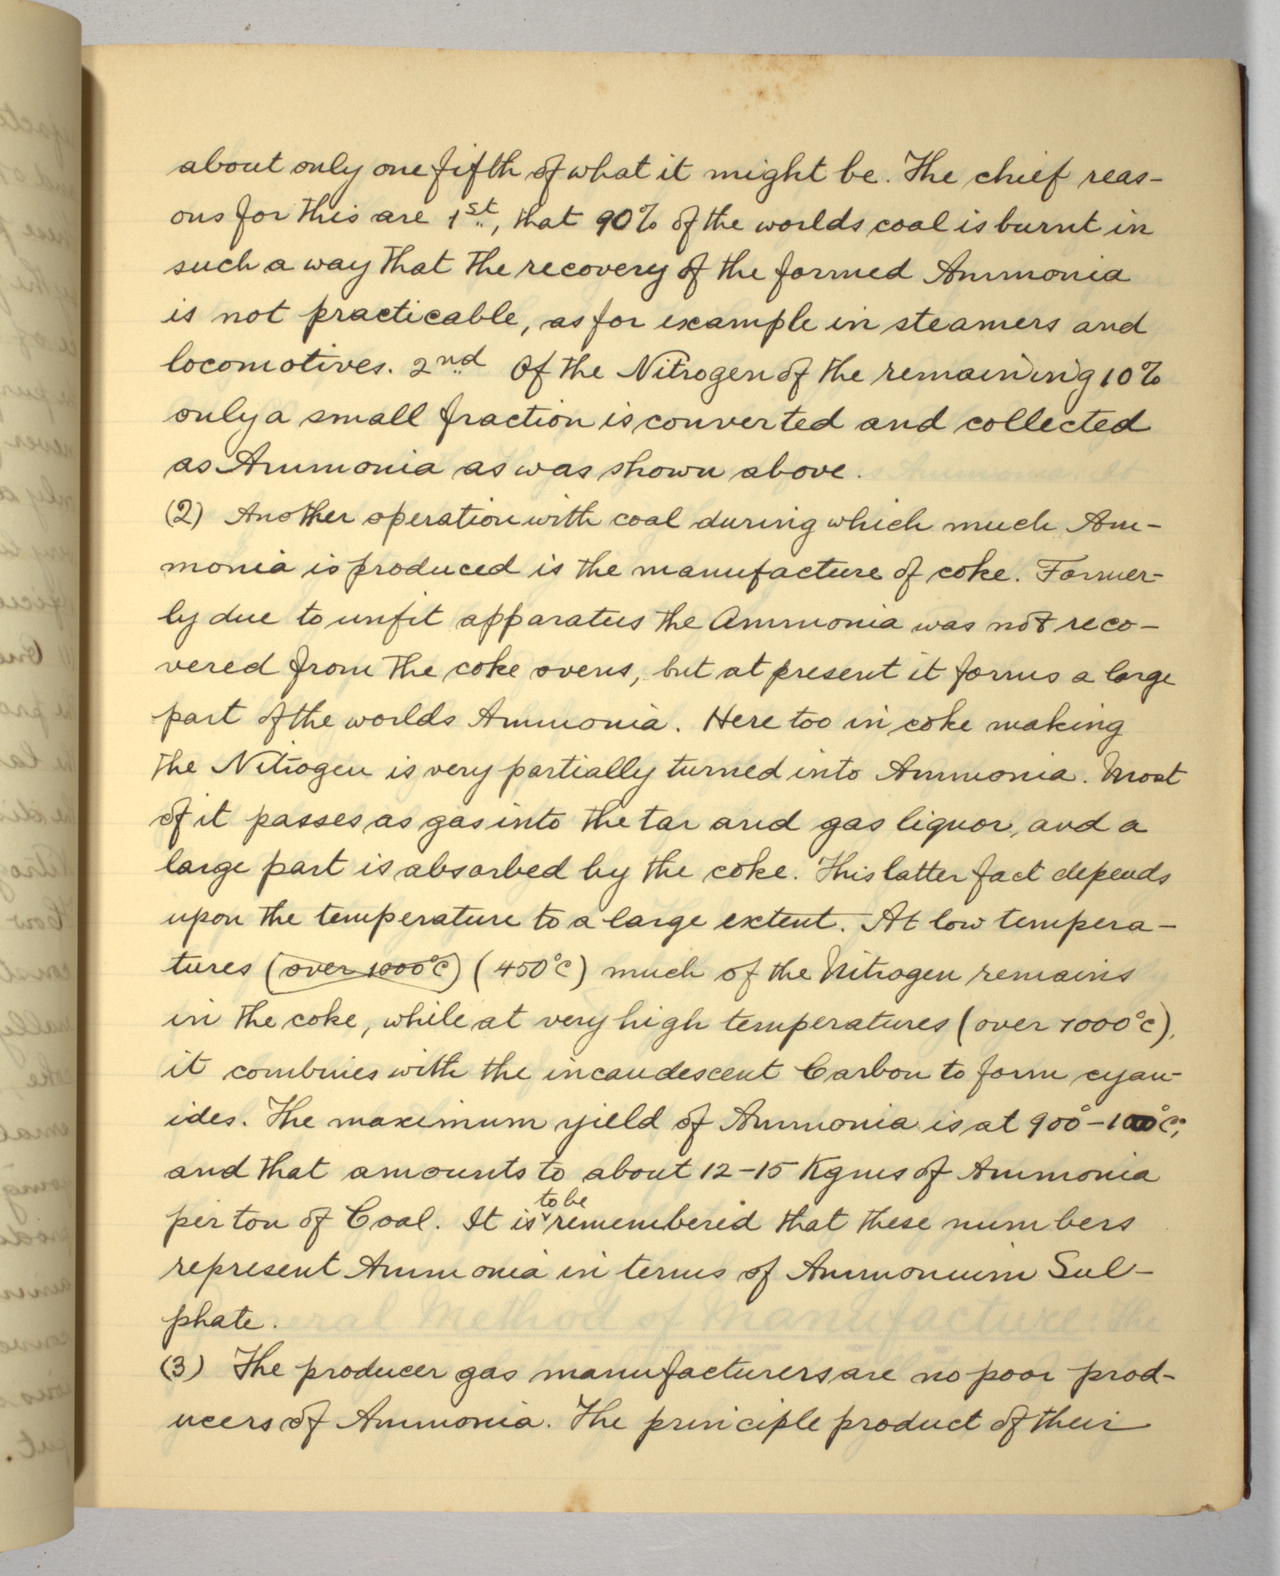 about only one fifth of what it might be. The chief reas-
ons for this are 1st, that 90% of the worlds coal is burnt in
such a way that the recovery of the formed Ammonia
is not practicable, as for example in steamers and
locomotives. 2nd Of the Nitrogen of the remaining 10%
only a small fraction is converted and collected
as Ammonia as was shown above.
(2) Another operation with coal during which much Am-
monia is produced is the manufacture of coke. Former-
ly due to unfit apparatus the Ammonia was not reco-
vered from the coke ovens, but at present it forms a large
part of the worlds Ammonia. Here too in coke making
the Nitrogen is very partially turned into Ammonia. Most
of it passes as gas into the tar and gas liquor, and a
large part is absorbed by the coke. This latter fact depends
upon the temperature to a large extent. At low tempera-
tures (over 1000°C) (450°C) much of the Nitrogen remains
in the coke, while at very high temperatures (over 1000°C),
it combines with the incandescent Carbon to form cyan-
ides. The maximum yield of Ammonia is at 900°-1000°C,
and that amounts to about 12-15 Kgms of Ammonia
per ton of Coal. It is to be remembered that these numbers
represent Ammonia in terms of Ammonium Sul-
phate.
(3) The producer gas manufacturers are no poor prod-
ucers of Ammonia. The principle product of their